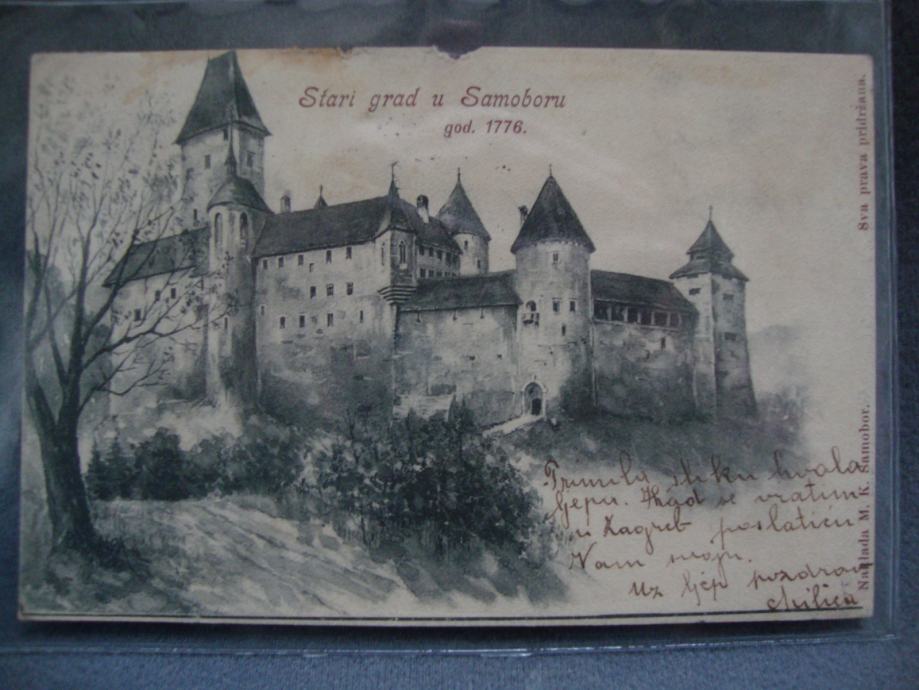 Stari grad u Samoboru
god. 1776.
Sva prava pridržana.
Naklada M. K. Samobor.
Primila sliku hvala
ljepa. Kad se vratim
u Zagreb poslati ću
Vam moju.
Uz ljep pozdrav
Milica